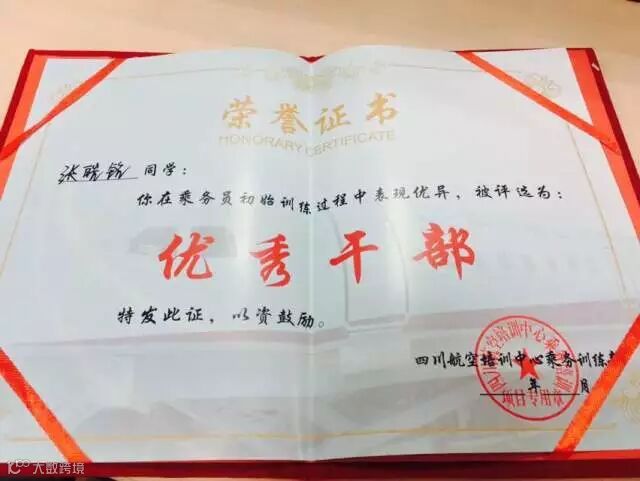 荣誉证书
HONORARY CERTIFICATE
同学：
你在乘务员初始训练过程中表现优异，被评选为：
优秀干部
特发此证，以资鼓励。
四川航空培训中心乘务训练
年 月
大数跨境